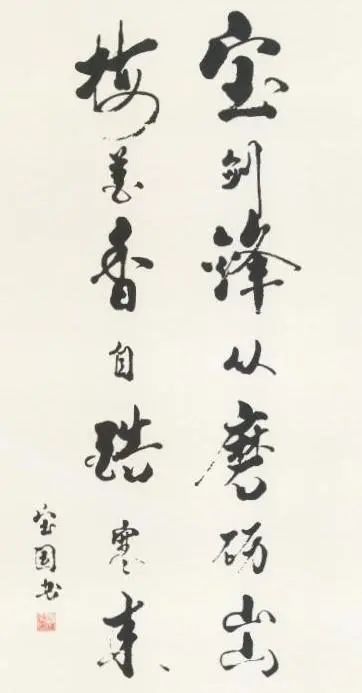 宝剑锋从磨砺出
梅花香自苦寒来
宝国书